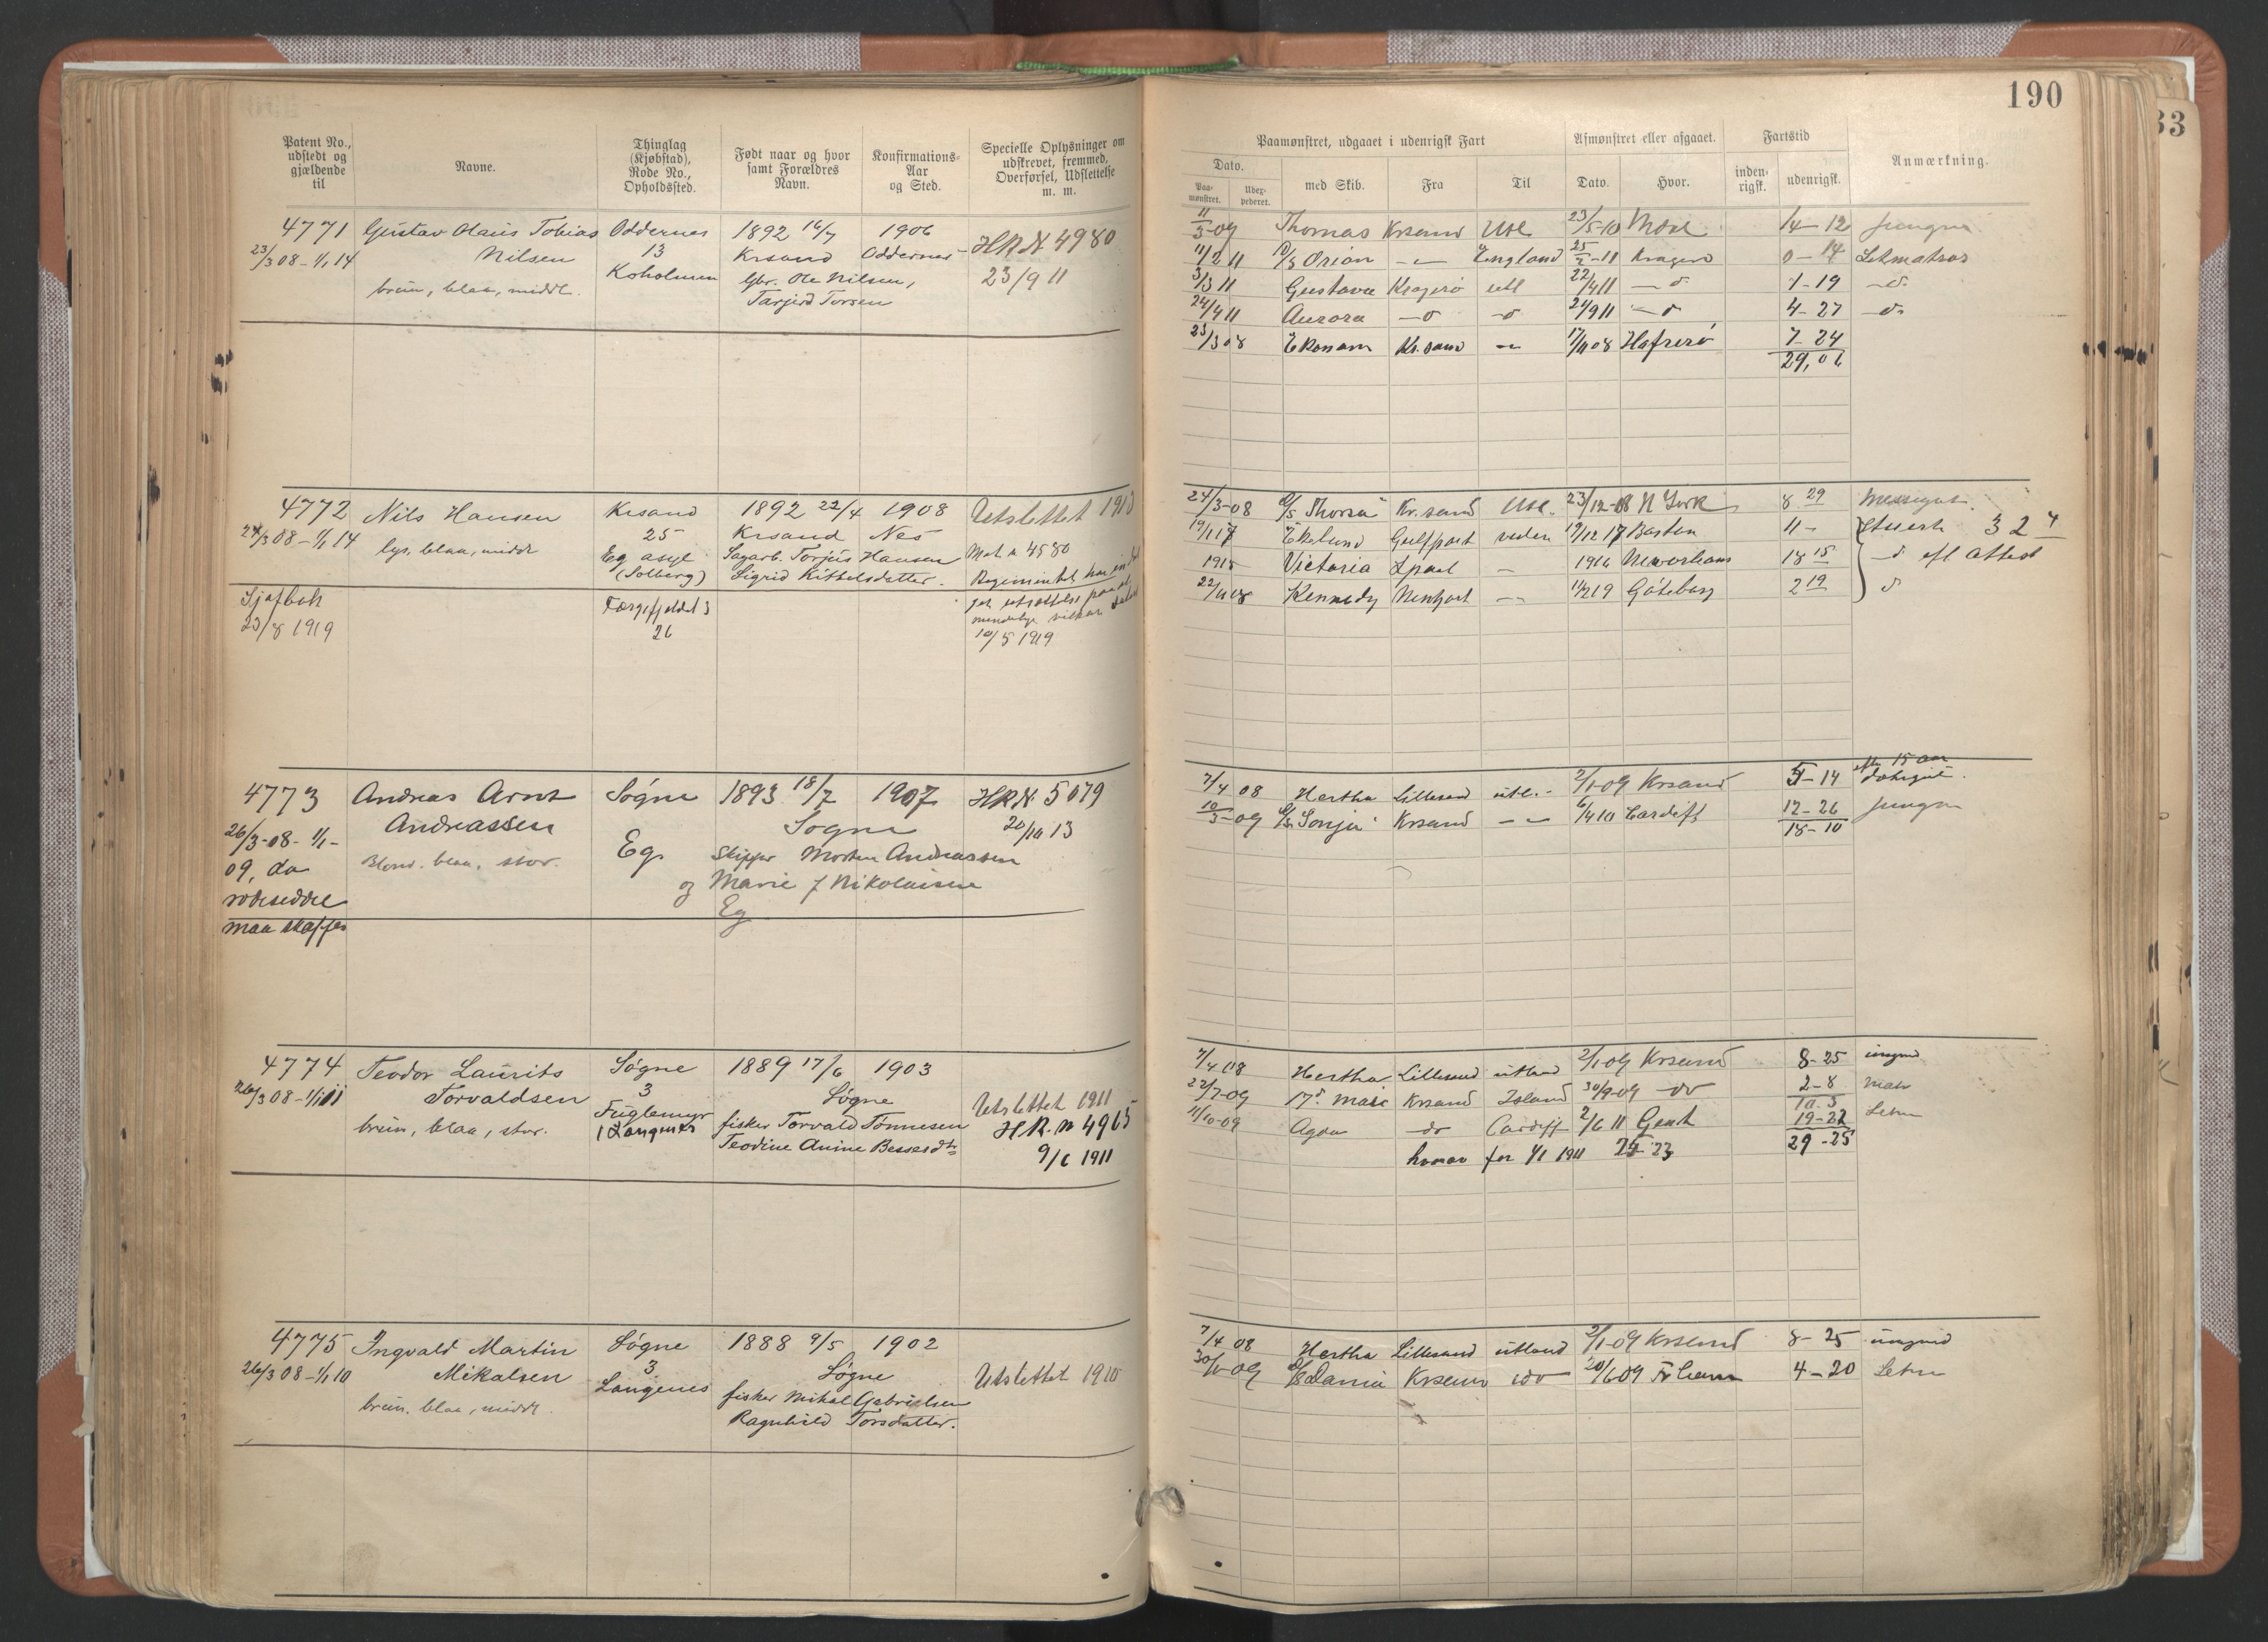 190
33
Patent No., udstedt og gjældende til
Navne.
Thinglag (Kjøbstad), Rode No., Opholdssted.
Født naar og hvor samt Forældres Navn.
Konfirmations-Aar og Sted.
Specielle Oplysninger om udskrevet, fremmed, Overførsel, Udslettelse m. m.
Paamønstret, udgaaet i udenrigsk Fart
Afmønstret eller afgaaet.
Fartstid
Anmærkning.
Dato.
Paa-mønstret.
med Skib.
Fra
Til
Dato.
Hvor.
inden-rigsk.
udenrigsk.
4771 Gustav Olaus Tobias Oddernes 1892 16/7 1906 HRN 4980
23/3 08 - 1/1 14 Nilsen 13 Krsand Oddernes 23/9 11
brun, blaa, middl. Koholmen Gbr. Ole Nilsen,
Tarjerd Torsen
11/3-09 Thomas Krsand Utl 23/5-10 14-12 Jungm
11/2 11 D/S Orion -"- England 25/2-11 Kragerø 0-14 Letmatros
3/3 11 Gustava Kragerø utl 22/4 11 -d 1-19 -d
24/4 11 Aurora -d -d 21/9 11 -d 4-27 -d
23/3 08 Ekonom Kr.sand -"- 17/11 08 7-24
29,06
4772 Nils Hansen Krsand 1892 22/4 1908 Utslettet 1913
24/3 08 - 1/1 14 lys, blaa, middl 25 Krsand Nes
Eg asyl Sagarb. Torjus Hansen
(Solberg) Sigrid Kittelsdatter.
Sjøfbok
23/8 1919
26
10/5 1919
24/3-08 D/S Thorsa Kr.sand Utl. 23/12-08 N York 8 29 Messegut.
19/1 17 Ekelund Gulfport veden 19/12 17 Boston 11- Stuert 3 2 4
1915 Victoria Lpool - 1916 Neworleans 18 15 -d efl Attest
22/11 08 Kennedy - Göteborg 2 19 d
4773 Andreas Arnt Søgne 1893 18/7 1907 HRN 5079
26/3-08 - 1/1- Andreassen Sogne 20/10 13
09, da Blond. blaa, stor. Eg. Skipper Morten Andreassen
rodeseddel og Marie f Nikolaisen
maa skaffes Eg
7/4 08 Hertha Lillesand utl. - 2/1-09 Krsand 5-14 eft. 15 aar
10/3-09 D/S "Sonja" Krsand -"- 6/4 10 Cardiff 12-26 Jungm
18-10
4774 Teodor Laurits Søgne 1889 17/6 1903
26/3 08 - 1/1 11 Torvaldsen 3 Søgne Utslettet 1911
brun, blaa, stor. Fuglemyr fisker Torvald Tønnesen H.R.N 4965
Teodine Anine Bessesdtr 9/6 1911
7/4 08 Hertha Lillesand utland 2/1-09 Krsand 8-25 ungmd
22/7-09 17de Mai Krsand Island 30/9-09 do 2-8 Matr
10 3
11/10-09 Agda do Cardiff 2/6 11 Gent 19-22 Letm
29-25
hvorav før 1/1 1911 25-23
4775 Ingvald Martin Søgne 1888 9/5 1902
26/3 08 - 1/1 10 Mikalsen 3 Søgne Utslettet 1910
brun. blaa, middl. Langenes fisker Mikal Gabrielsen
Ragnhild Torsdatter.
7/4 08 Hertha Lillesand utland 2/1-09 Krsand 8-25 ungmd
D/S Dania Krsand 20/6 09 4-20 Letm